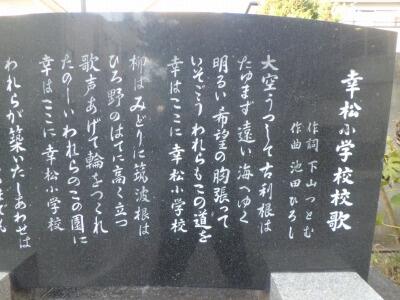 幸松小学校校歌
作詞 下山つとむ
作曲 池田ひろし
大空うつして古利根は
たゆまず遠い海へゆく
明るい希望の胸張って
いそごうわれらもこの道を
幸はここに幸松小学校
柳はみどりに筑波根は
ひろ野のはてに高く立つ
歌声あげて輪をつくれ
たのしいわれらのこの園に
幸はここに幸松小学校
われらが築いたしあわせは